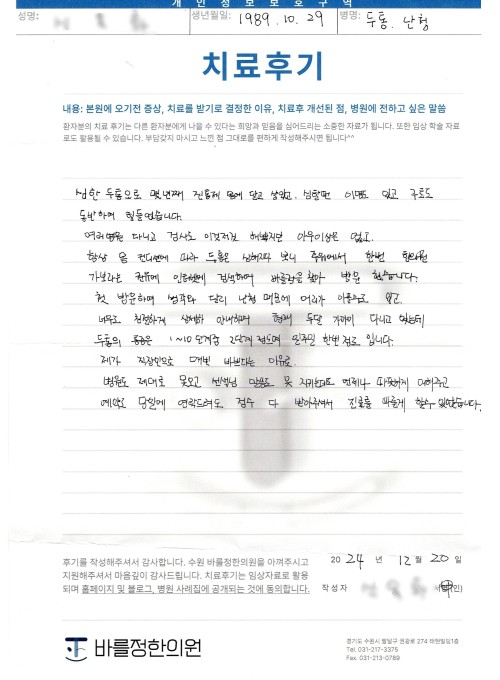 개 인 정 보 보 호 구 역
성명: 생년월일: 1989. 10. 29 병명: 두통, 난청
치료후기
내용: 본원에 오기전 증상, 치료를 받기로 결정한 이유, 치료후 개선된 점, 병원에 전하고 싶은 말씀
환자분의 치료 후기는 다른 환자분에게 나을 수 있다는 희망과 믿음을 심어드리는 소중한 자료가 됩니다. 또한 임상 학술 자료
로도 활용될 수 있습니다. 부담갖지 마시고 느낀 점 그대로를 편하게 작성해주시면 됩니다^^
심한 두통으로 몇년째 진통제 달고 살았고. 심할땐 이명도 있고 구토도
동반하여 힘들었습니다.
여러병원 다니고 검사도 이것저것 해봤지만 아무이상은 없고.
항상 몸 컨디션에 따라 두통은 심해지다 보니 주위에서 한번 한의원
가보라는 권유에 인터넷에 검색하여 바를정을 찾아 방문 했습니다.
첫 방문하여 생각과 달리 난청 때문에 머리가 아플수도 있고.
너무도 친절하게 상세히 안내하며 현재 두달 가까이 다니고 있는데
두통의 통증은 1~10 단계중 2단계 정도며 일주일 한번 정도 입니다.
제가 직장인으로 매번 바쁘다는 이유로.
병원도 제대로 못오고 선생님 말씀도 못 지키는데도 언제나 따뜻하게 대해주고
예약도 당일에 연락드려도 접수 다 받아주셔서 진료를 빠르게 할수 있었습니다.
후기를 작성해주셔서 감사합니다. 수원 바를정한의원을 아껴주시고
지원해주셔서 마음깊이 감사드립니다. 치료후기는 임상자료로 활용
되며 홈페이지 및 블로그, 병원 사례집에 공개되는 것에 동의합니다.
20 24 년 12 월 20 일
작성자 (인)
바를정한의원
경기도 수원시 팔달구 권광로 274 1층
Tel. 031-217-3375
Fax. 031-213-0789